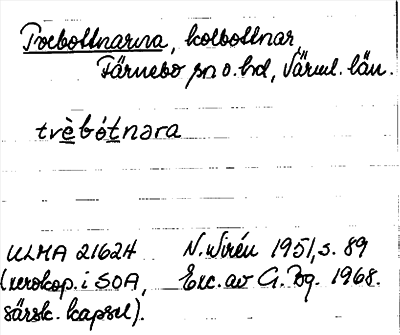 Tvebottnarna, kolbottnar,
Färnebo sn o. hd, Värml. län.
trèbótnara
ULMA 21624 N. Wirén 1951, s. 89
(xerokop. i SOA, Exc. av G. Bg. 1968.
särsk. kapsel).